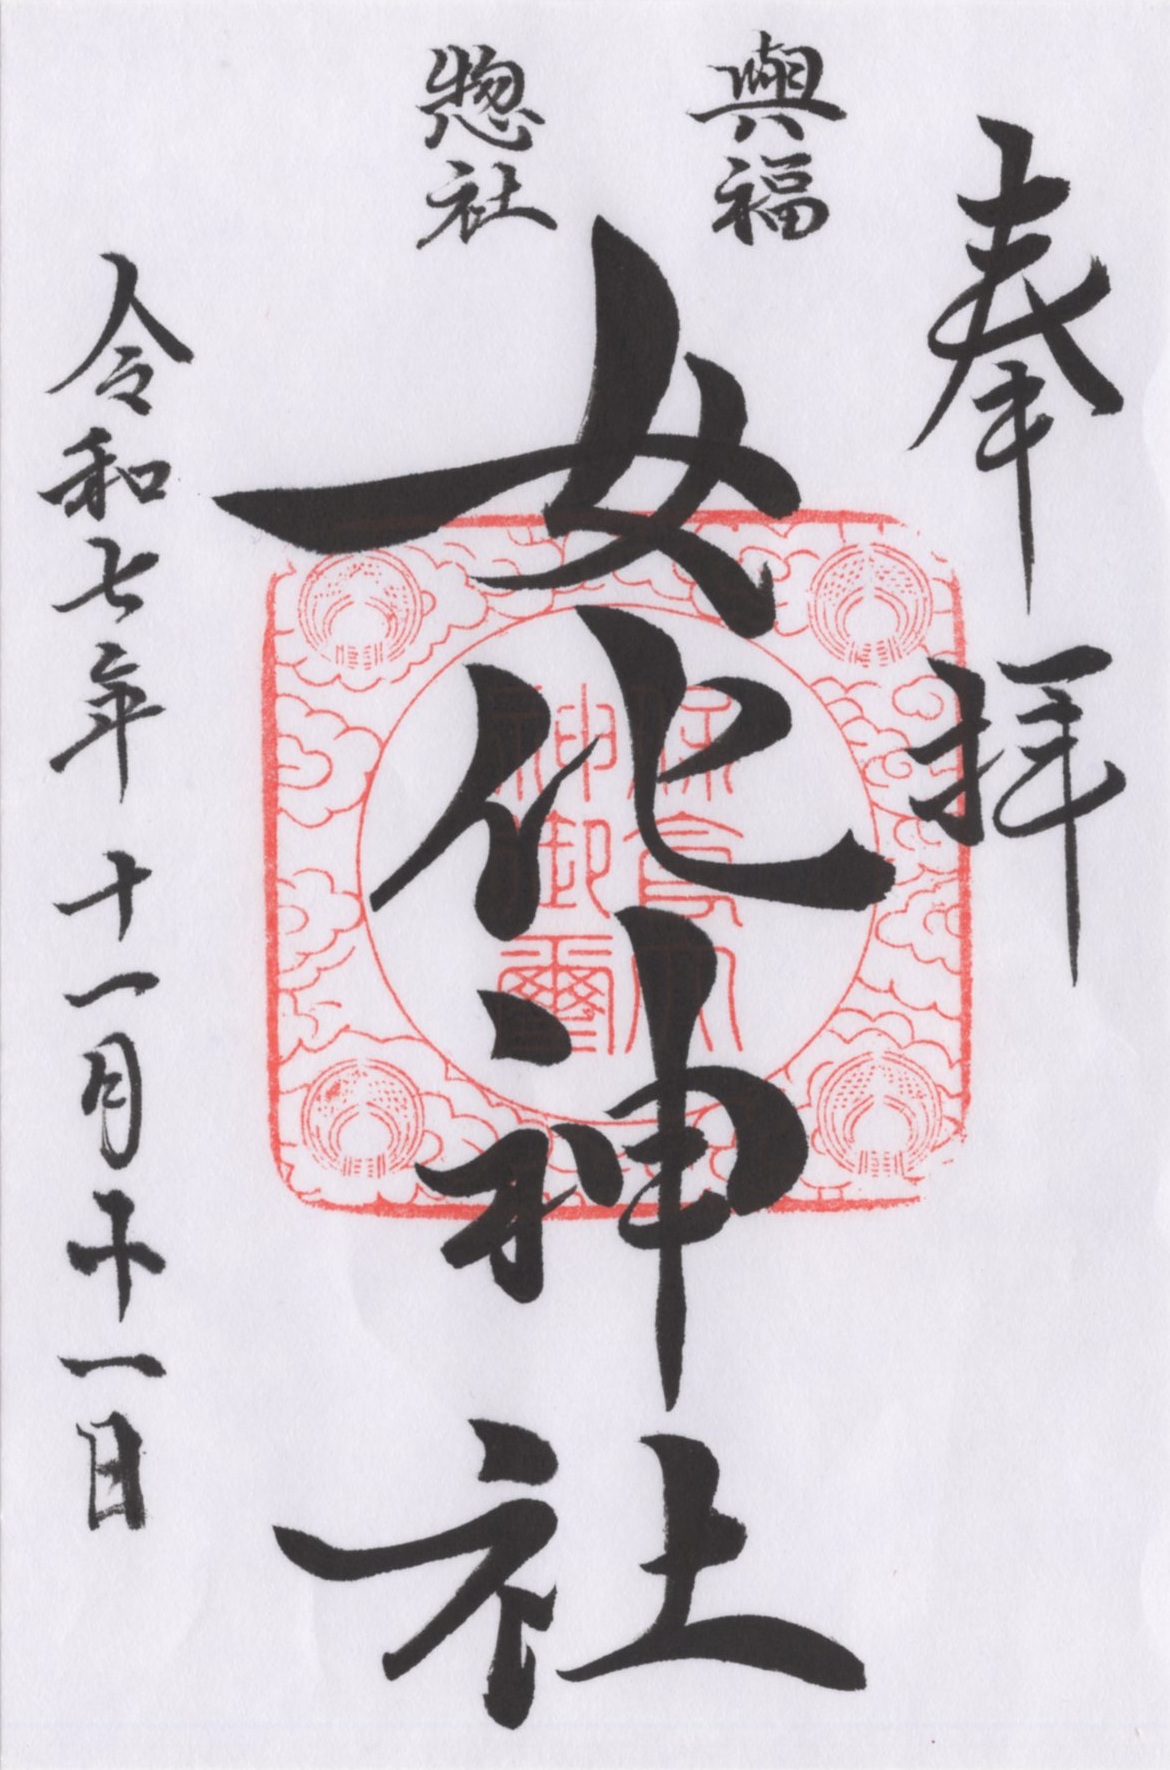 奉拝
興福
惣社
女化神社
保食大
神御璽
令和七年十一月十一日